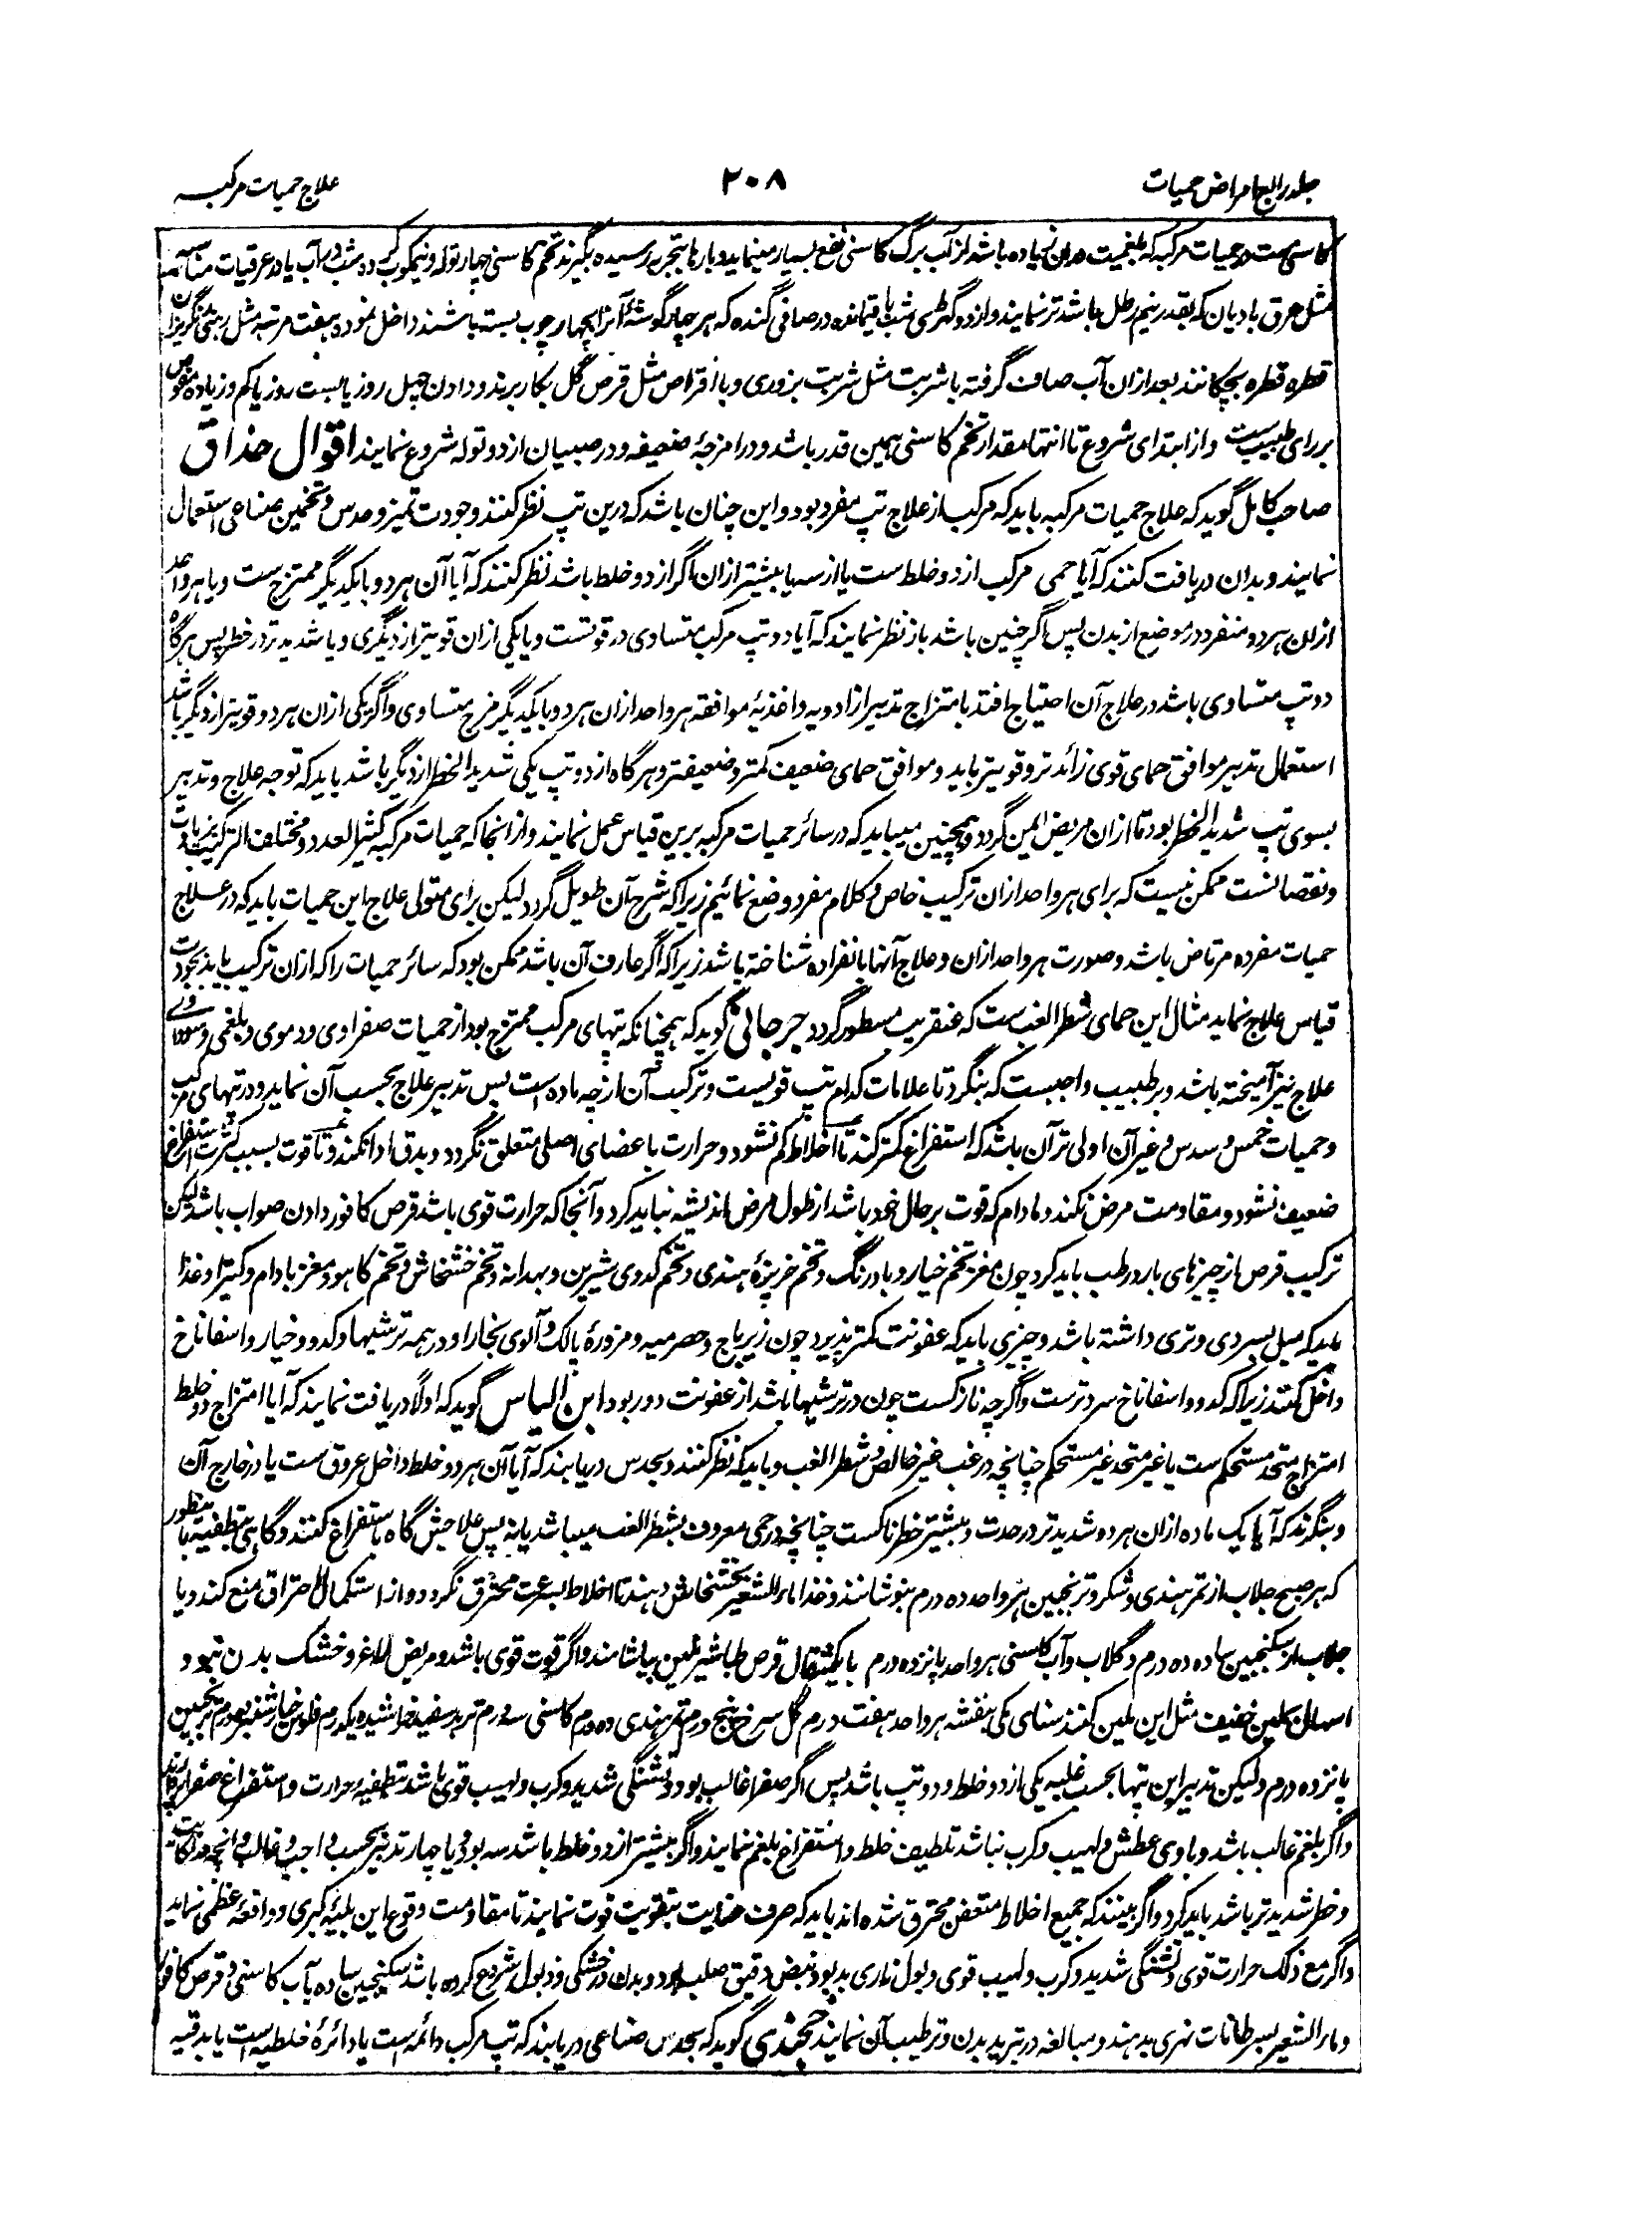 جلد رابع امراض حمیات
۲۰۸
علاج حمیات مرکبه
کاسنی ست در حمیات مرکبه که بلغمیت دران زیاده باشد از آب برگ کاسنی نفع بسیار مینماید و بارها بتجربه رسیده بگیرند تخم کاسنی چهار توله و نیمکوب کرده شب در آب یا در عرقیات مناسبه
مثل عرق بادیان که بقدر نیم رطل باشد تر نمایند و از دو گهڑی شب باقیمانده در صافی گنده که هر چهار گوشۀ آنرا بچهار چوب بسته باشند داخل نموده هفت مرتبه مثل رینی رنگریزان
قطره قطره بچکانند بعد ازان آب صاف گرفته با شربت مثل شربت بزوری و با اقراص مثل قرص گل بکار برند و دادن چهل روز یا بست روز یا کم و زیاده مفوض
بر رای طبیب ست و از ابتدای شروع تا انتها مقدار تخم کاسنی همین قدر باشد و در امزجۀ ضعیفه و در صبیان از دو توله شروع نمایند اقوال حذاق
صاحب کامل گوید که علاج حمیات مرکبه باید که مرکب از علاج تپ مفرد بود و این چنان باشد که درین تپ نظر کنند و جودت تمیز و حدس و تخمین صناعی استعمال
نمایند و بدان دریافت کنند که آیا حمی مرکب از دو خلط ست یا از سه یا بیشتر ازان اگر از دو خلط باشد نظر کنند که آیا آن هر دو با یکدیگر ممتزج ست و یا هر واحد
ازان هر دو منفرد در موضع از بدن پس اگر چنین باشد باز نظر نمایند که آیا دو تپ مرکب متساوی در قوتست و یا یکی ازان قویتر از دیگری و یا شدیدتر در خطر پس هرگاه
دو تپ متساوی باشد در علاج آن احتیاج افتد بامتزاج تدبیر از ادویه و اغذیۀ موافقه هر واحد ازان هر دو با یکدیگر مزج متساوی و اگر یکی ازان هر دو قویتر از دیگر باشد
استعمال تدبیر موافق حمای قوی زائدتر و قویتر باید و موافق حمای ضعیف کمتر و ضعیفتر و هرگاه از دو تپ یکی شدید الخطر از دیگر باشد باید که توجه علاج و تدبیر
بسوی تپ شدید الخطر بود تا ازان مریض ایمن گردد و همچنین میباید که در سائر حمیات مرکبه برین قیاس عمل نمایند و از انجا که حمیات مرکبه کثیر العدد و مختلف الترکیب بزیادت
و نقصانست ممکن نیست که برای هر واحد ازان ترکیب خاص و کلام مفرد وضع نمائیم زیرا که شرح آن طویل گردد لیکن برای متولی علاج این حمیات باید که در علاج
حمیات مفرده مرتاض باشد و صورت هر واحد ازان و علاج آنها بانفراده شناخته باشد زیرا که اگر عارف آن باشد ممکن بود که سائر حمیات را که ازان ترکیب یابد بجودت
قیاس علاج نماید مثال این حمای شطر الغب ست که عنقریب مسطور گردد جرجانی گوید که همچنانکه تپهای مرکب ممتزج بود از حمیات صفراوی و دموی و بلغمی و سوداوی
علاج نیز آمیخته باشد و بر طبیب واجبست که بنگرد تا علامات کدام تپ قویست و ترکیب آن از چه ماده است پس تدبیر علاج بحسب آن نماید و در تپهای مرکب
و حمیات خمس و سدس و غیر آن اولی تر آن باشد که استفراغ کمتر کنند تا اخلاط کم نشود و حرارت باعضای اصلی متعلق نگردد و بدق ادا نکند و تا قوت بسبب کثرت استفراغ
ضعیف نشود و مقاومت مرض بکند و مادام که قوت بر حال خود باشد از طول مرض اندیشه نباید کرد و آنجا که حرارت قوی باشد قرص کافور دادن صواب باشد لیکن
ترکیب قرص از چیزهای بارد رطب باید کرد چون مغز تخم خیار و بادرنگ و تخم خرپزۀ هندی و تخم کدوی شیرین و بهدانه و تخم خشخاش و تخم کاهو و مغز بادام و کتیرا و غذا
باید که میل بسردی و تری داشته باشد و چیزی باید که عفونت کمتر پذیرد چون زیرباج و حصرمیه و مزورۀ پالک و آلوی بخارا و در همه ترشیها و کدو و خیار و اسفاناخ
داخل کنند زیرا که کدو و اسفاناخ سرد ترست و اگرچه نازکست چون در ترشیها باشد از عفونت دور بود ابن الیاس گوید که اولاً دریافت نمایند که آیا امتزاج دو خلط
امتزاج متحد مستحکم ست یا غیر متحد غیر مستحکم چنانچه در غب غیر خالص و شطر الغب و باید که نظر کنند و بحدس دریابند که آیا آن هر دو خلط داخل عروق ست یا در خارج آن
و بنگرند که آیا یک ماده ازان هر دو شدیدتر در حدت و بیشتر خطرناکست چنانچه در حمی معروف بشطر الغب میباشد یا نه پس علاجش گاه باستفراغ کنند و گاهی بتطفیه باینطور
که هر صبح جلاب از تمر هندی و شکر و ترنجبین هر واحد ده درم بنوشانند و غذا ماء الشعیر بخشخاش دهند تا اخلاط بسرعت محترق نگردد و از استکمال احتراق منع کند و یا
جلاب از سکنجبین ساده ده درم و گلاب و آب کاسنی هر واحد پانزده درم با یکمثقال قرص طباشیر ملین بیاشامند و اگر قوت قوی باشد و مریض لاغر و خشک بدن نبود
اسهال بملین خفیف مثل این ملین کنند سنای مکی بنفشه هر واحد هفت درم گل سرخ پنج درم تمر هندی ده درم کاسنی سه درم تربد سفید خراشیده یکدرم فلوس خیارشنبر ده درم ترنجبین
پانزده درم و لیکن تدبیر این تپها بحسب غلبه یکی از دو خلط و دو تپ باشد پس اگر صفرا غالب بود و تشنگی شدید و کرب و لهیب قوی باشد تطفیۀ حرارت و استفراغ صفرا نمایند
و اگر بلغم غالب باشد و با وی عطش و لهیب و کرب نباشد تلطیف خلط و استفراغ بلغم نمایند و اگر بیشتر از دو خلط باشد سه بود و یا چهار تدبیر بحسب واجب و غالب و انچه در نکایت
و خطر شدیدتر باشد باید کرد و اگر بینند که جمیع اخلاط متعفن محترق شده اند باید که صرف عنایت بتقویت قوت نمایند تا مقاومت وقوع این بلیۀ کبری و واقعۀ عظمی نماید
و اگر مع ذلک حرارت قوی و تشنگی شدید و کرب و لهیب قوی و بول ناری بدبو و نبض دقیق صلب بود و بدن در خشکی و ذبول شروع کرده باشد سکنجبین ساده بآب کاسنی و قرص کافور
و ماء الشعیر بسرطانات نهری بدهند و مبالغه در تبرید بدن و ترطیب آن نمایند خجندی گوید که بحدس صناعی دریابند که تپ مرکب دائمه است یا دائرۀ خلطیه است یا بدقیه